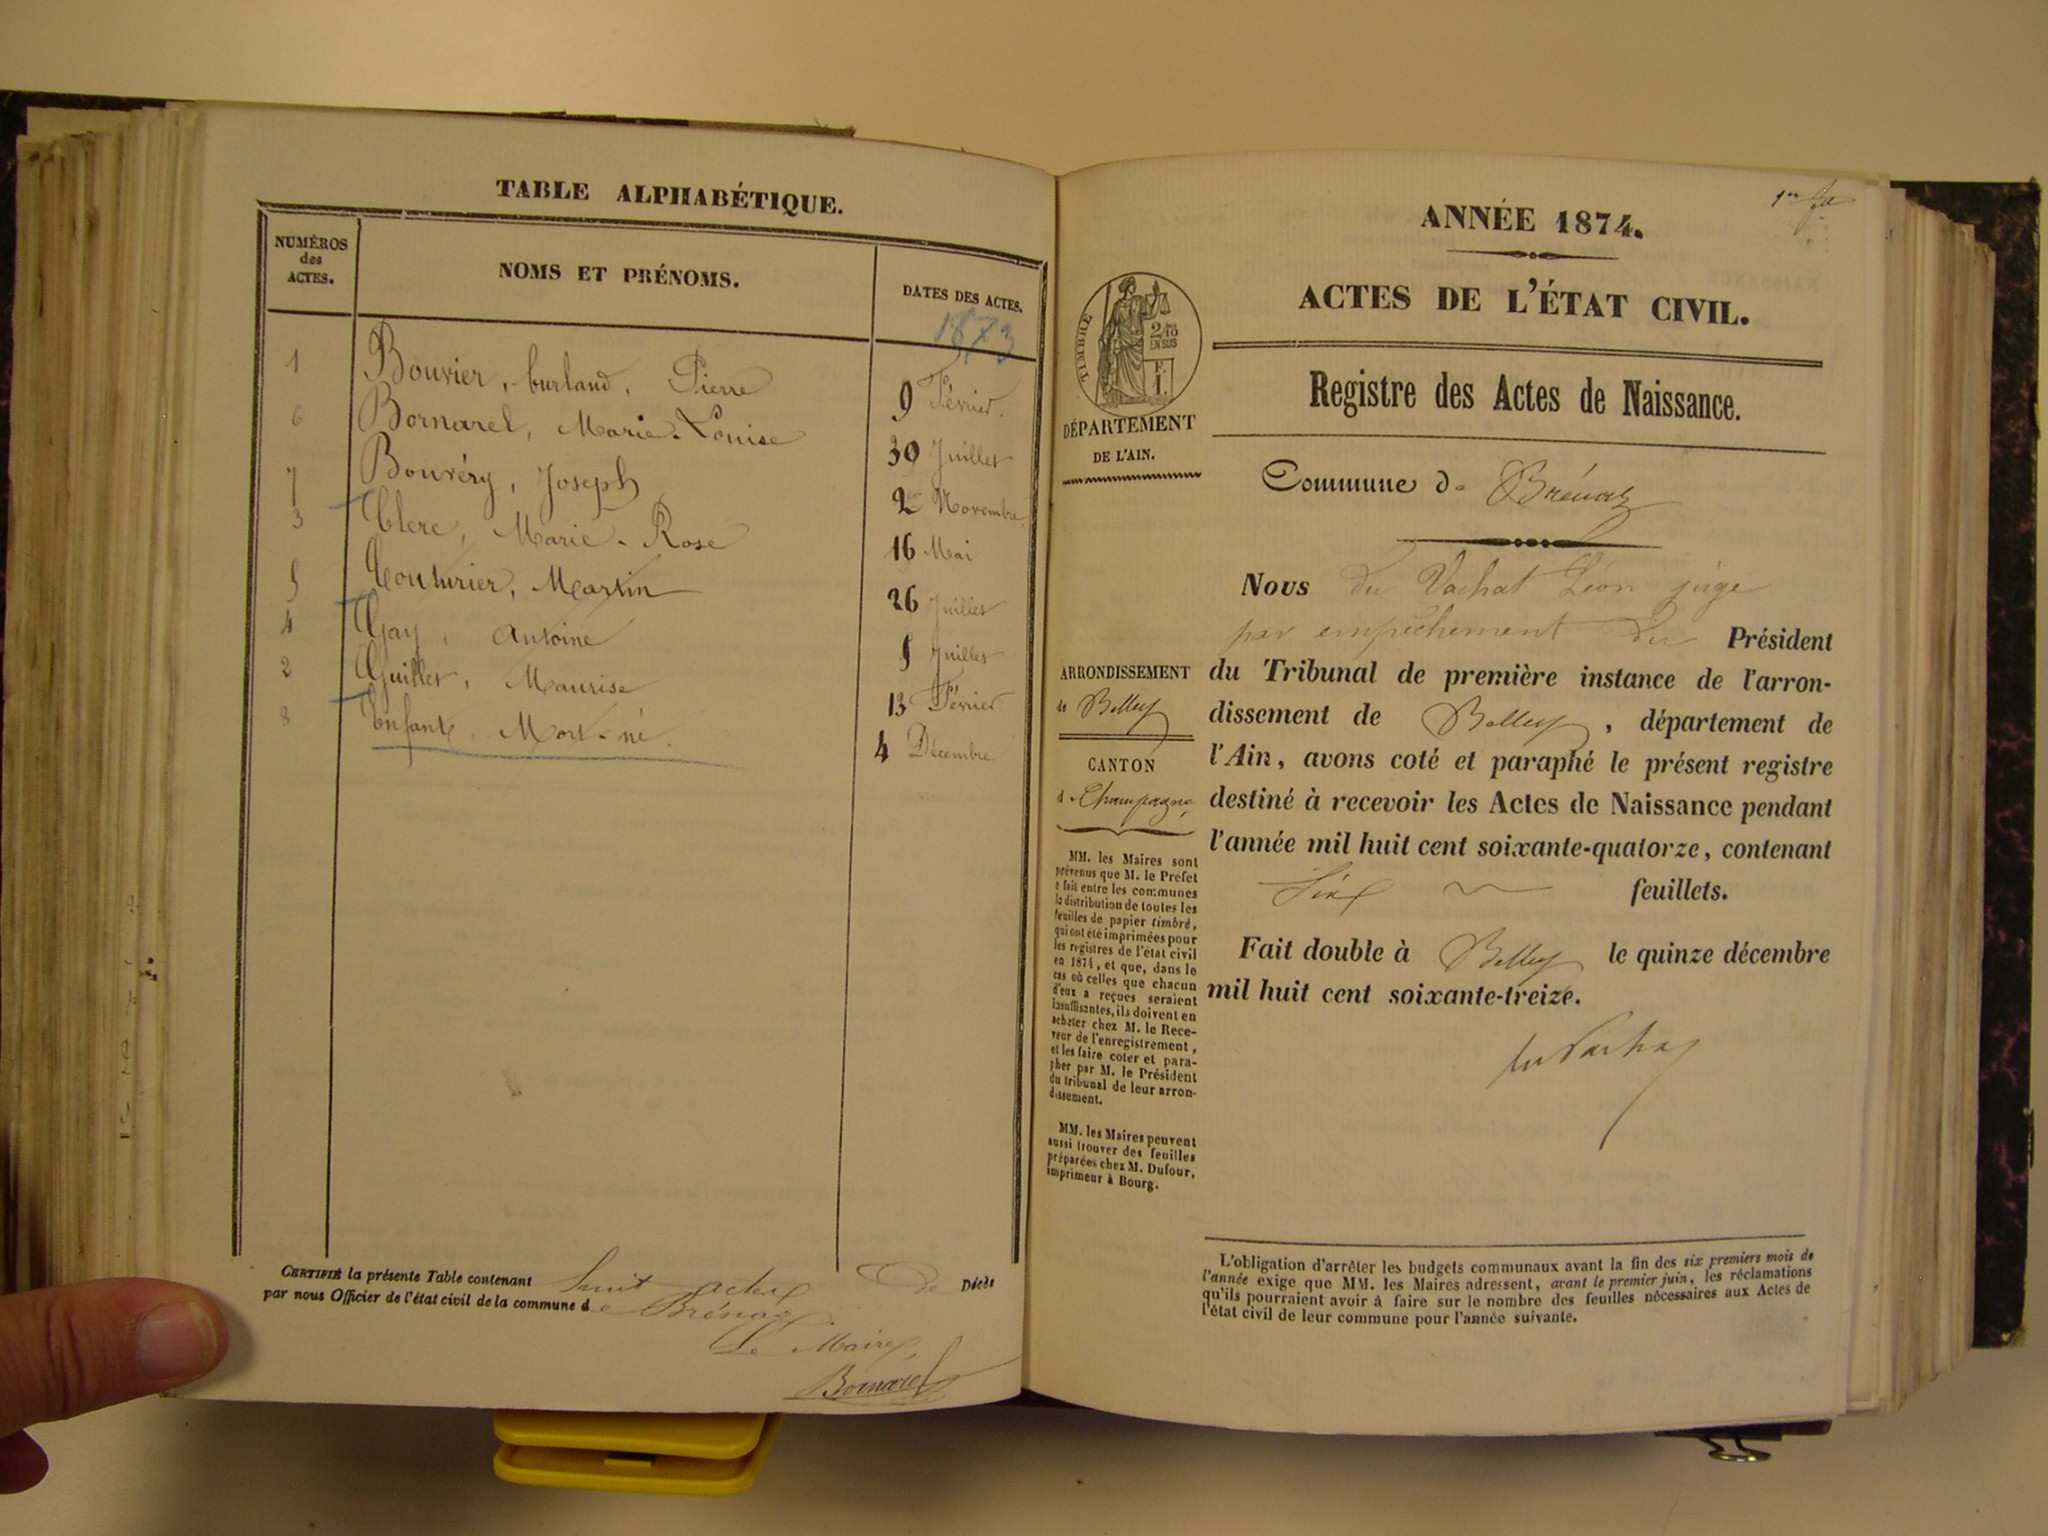 TABLE ALPHABÉTIQUE.
NUMÉROS
des
ACTES.
NOMS ET PRÉNOMS.
DATES DES ACTES.
1873
1 Bouvier, burland, Pierre 9 Février.
6 Bornarel, Marie-Louise 30 Juillet
7 Bouvéry, Joseph 2 Novembre
3 Clerc, Marie-Rose 16 Mai
5 Couturier, Martin 26 Juillet
4 Gay, Antoine 5 Juillet
2 Guillet, Maurise 13 Février
8 Enfant, Mort-né. 4 Décembre
CERTIFIÉ la présente Table contenant huit actes de Décès
par nous Officier de l'état civil de la commune de Brénaz
Le Maire,
Bornarel
1er
ANNÉE 1874.
ACTES DE L'ÉTAT CIVIL.
TIMBRE
2/10
EN SUS
F.
1.
DÉPARTEMENT
DE L'AIN.
Registre des Actes de Naissance.
Commune de Brénaz
Nous du Vachat Léon juge
par empêchement du Président
du Tribunal de première instance de l'arron-
dissement de Belley, département de
l'Ain, avons coté et paraphé le présent registre
destiné à recevoir les Actes de Naissance pendant
l'année mil huit cent soixante-quatorze, contenant
Six feuillets.
Fait double à Belley le quinze décembre
mil huit cent soixante-treize.
du Vachat
ARRONDISSEMENT
de Belley
CANTON
de Champagne
MM. les Maires sont
prévenus que M. le Préfet
a fait entre les communes
la distribution de toutes les
feuilles de papier timbré,
qui ont été imprimées pour
les registres de l'état civil
en 1874, et que, dans le
cas où celles que chacun
d'eux a reçues seraient
insuffisantes, ils doivent en
acheter chez M. le Rece-
veur de l'enregistrement,
et les faire coter et para-
pher par M. le Président
du tribunal de leur arron-
dissement.
MM. les Maires peuvent
aussi trouver des feuilles
préparées chez M. Dufour,
imprimeur à Bourg.
L'obligation d'arrêter les budgets communaux avant la fin des six premiers mois de
l'année exige que MM. les Maires adressent, avant le premier juin, les réclamations
qu'ils pourraient avoir à faire sur le nombre des feuilles nécessaires aux Actes de
l'état civil de leur commune pour l'année suivante.